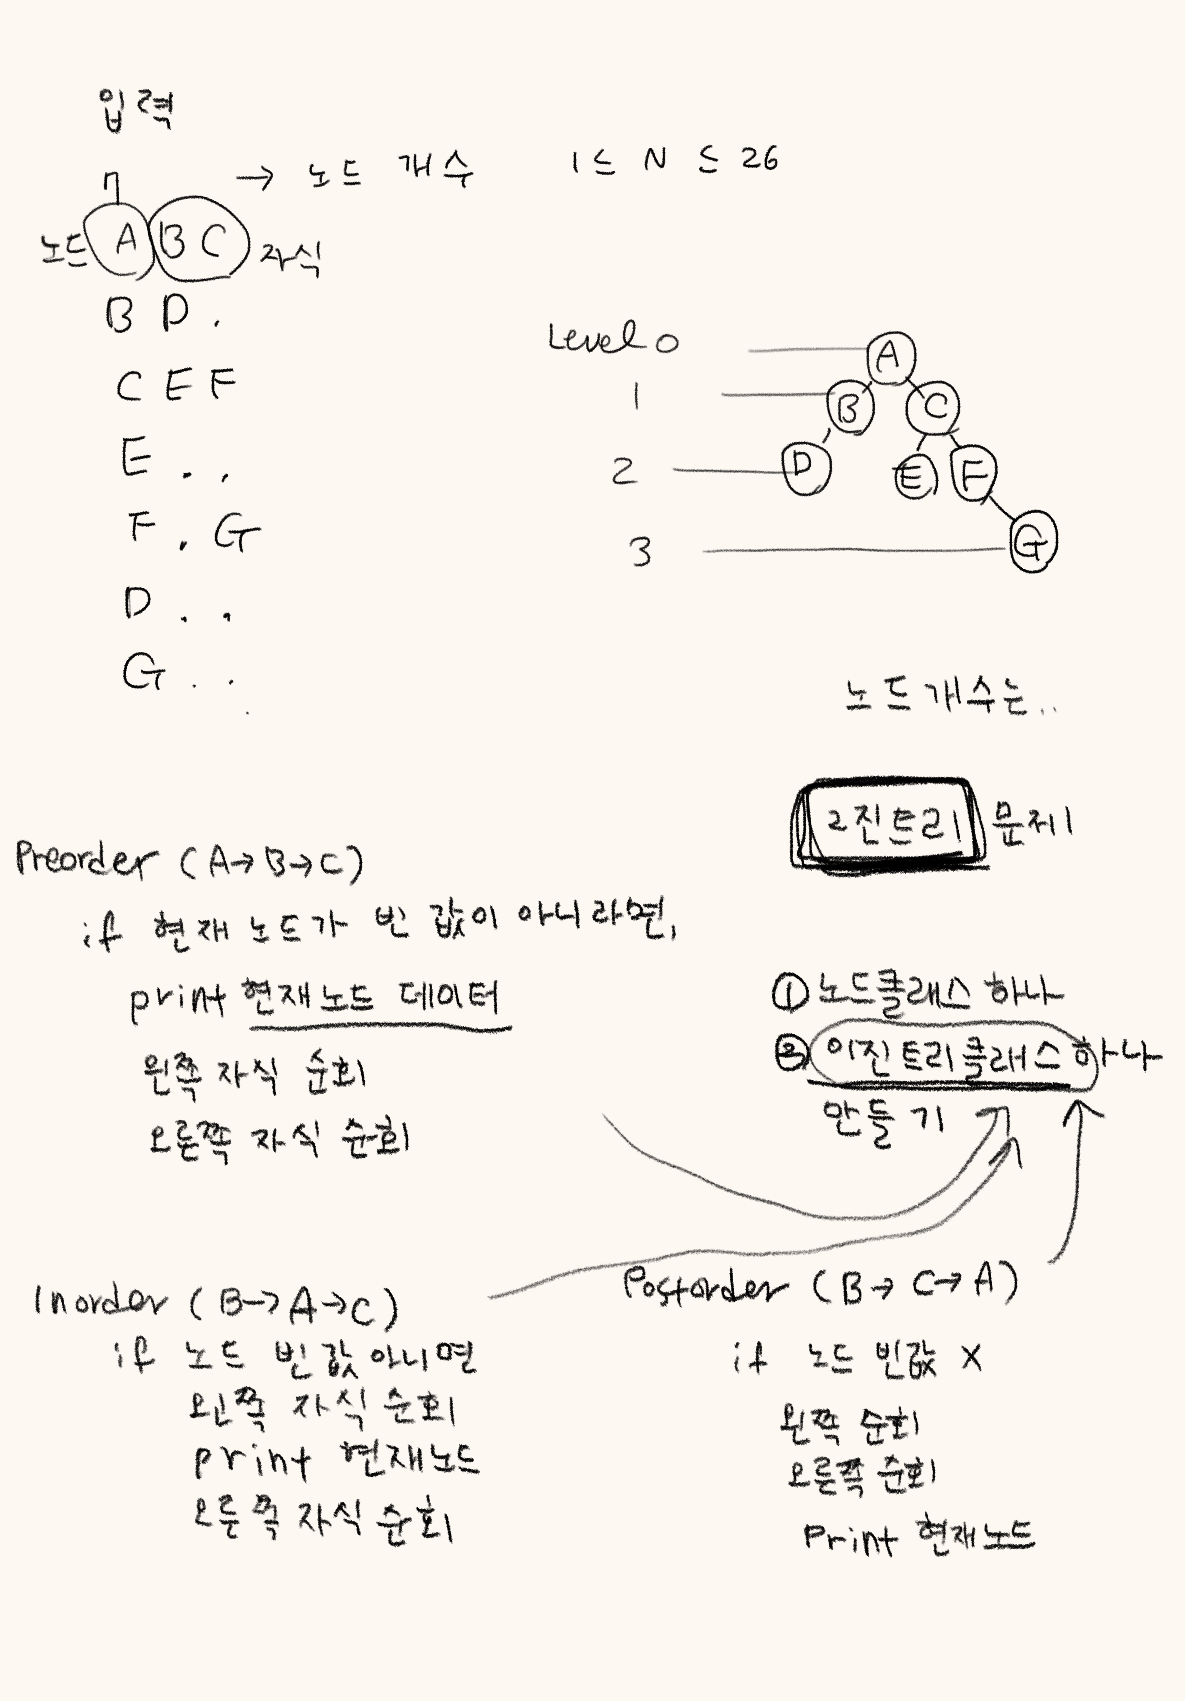 입력
n → 노드 개수 1 ≤ N ≤ 26
노드 A B C 자식
B D .
C E F
E . .
F . G
D . .
G . .
Level 0 A
1 B C
2 D E F
3 G
노드 개수는..
2진트리 문제
Preorder (A→B→C)
if 현재 노드가 빈 값이 아니라면,
print 현재노드 데이터
왼쪽 자식 순회
오른쪽 자식 순회
① 노드클래스 하나
② 이진트리클래스 하나
만들기
Inorder (B→A→C)
if 노드 빈값 아니면
왼쪽 자식 순회
print 현재노드
오른쪽 자식 순회
Postorder (B→C→A)
if 노드 빈값 X
왼쪽 순회
오른쪽 순회
Print 현재노드